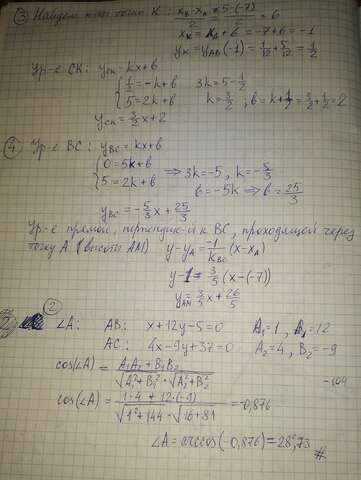 ③ Найдем коор. точки K: (x_B - x_A)/2 = (5-(-7))/2 = 6
x_K = x_A + 6 = -7+6 = -1
y_K = y_AB(-1) = 1/12 + 5/12 = 1/2
Ур-е CK: y_CK = kx+b
{ 1/2 = -k+b   3k = 5 - 1/2
{ 5 = 2k+b   k = 3/2 ; b = k + 1/2 = 3/2 + 1/2 = 2
y_CK = 3/2 x + 2
④ Ур-е BC: y_BC = kx+b
{ 0 = 5k+b ⇒ 3k = -5, k = -5/3
{ 5 = 2k+b   b = -5k ⇒ b = 25/3
y_BC = -5/3 x + 25/3
Ур-е прямой, перпендик-й к BC, проходящей через
точку A (высоты AM) y - y_A = -1/k_BC (x - x_A)
y - 1 = 3/5 (x-(-7))
y_AM = 3/5 x + 26/5
②
∠A: AB: x+12y-5=0   A₁=1, B₁=12
AC: 4x-9y+37=0   A₂=4, B₂=-9
cos(∠A) = (A₁A₂ + B₁B₂)/(√(A₁²+B₁²) · √(A₂²+B₂²))   -104
cos(∠A) = (1·4 + 12·(-9))/(√(1²+144) · √(16+81)) = -0,876
∠A = arccos(-0,876) = 28°,73 #